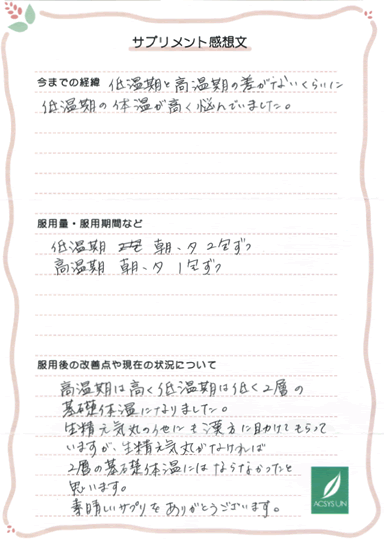 サプリメント感想文
今までの経緯 低温期と高温期の差がないくらいに
低温期の体温が高く悩んでいました。
服用量・服用期間など
低温期 朝、夕 2包ずつ
高温期 朝、夕 1包ずつ
服用後の改善点や現在の状況について
高温期は高く低温期は低く2層の
基礎体温になりました。
生精元気丸の他にも漢方に助けてもらって
いますが、生精元気丸がなければ
2層の基礎体温にはならなかったと
思います。
素晴しいサプリをありがとうございます。
ACSYSUN